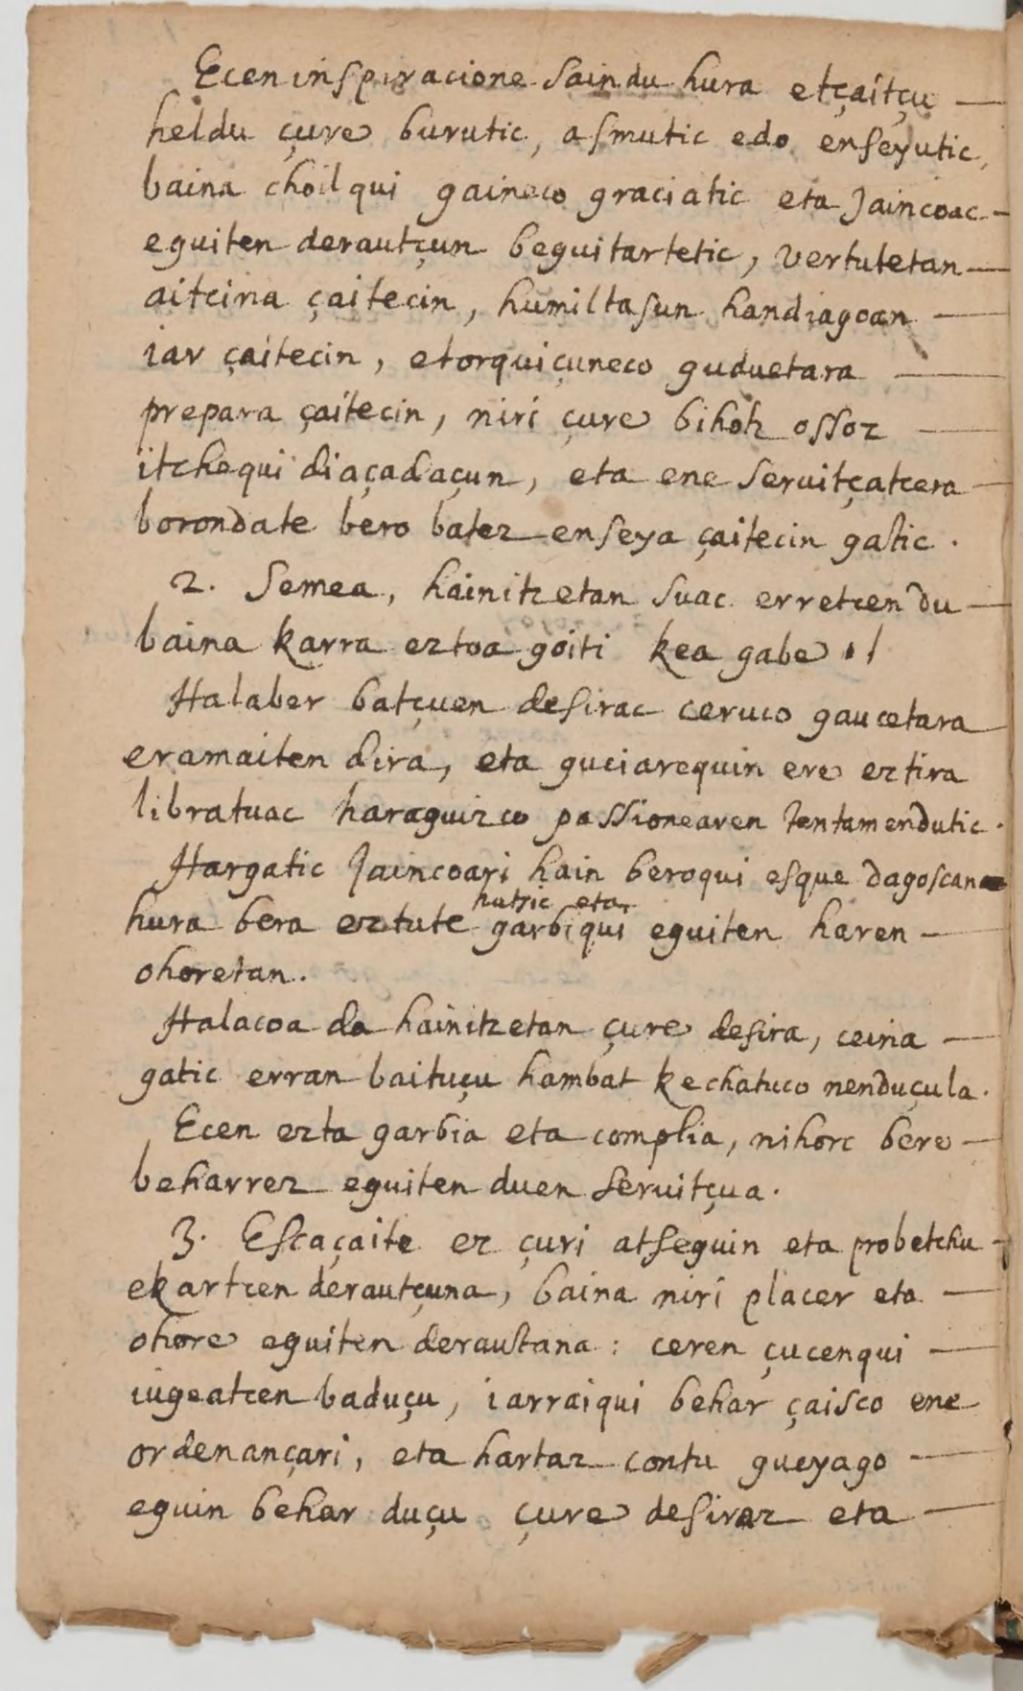 Ecen inspiracione saindu hura etçaitçu
heldu çure burutic, asmutic edo enseyutic,
baina choilqui gaineco graciatic eta Jaincoac
eguiten derautçun beguitartetic, vertutetan
aitcina çaitecin, humiltasun handiagoan
iar çaitecin, etorquiçuneco guduetara
prepara çaitecin, niri çure bihotz ossoz
itchequi diaçadaçun, eta ene seruitçatcera
borondate bero batez enseya çaitecin gatic.
2. Semea, hainitzetan suac erretcen du
baina karra eztoa goiti kea gabe
Halaber batçuen desirac ceruco gaucetara
eramaiten dira, eta guciarequin ere eztira
libratuac haraguizco passionearen tentamendutic.
Hargatic Jaincoari hain beroqui esque dagoscana
hutsic eta
hura bera eztute garbiqui eguiten haren
ohoretan.
Halacoa da hainitzetan çure desira, ceina
gatic erran baituçu hambat kechatuco nenduçula.
Ecen ezta garbia eta complia, nihorc bere
beharrez eguiten duen seruitçua.
3. Escaçaite ez çuri atseguin eta probetchu
ekartcen derautçuna, baina niri placer eta
ohore eguiten deraustana: ceren çucenqui
iugeatcen baduçu, iarraiqui behar çaisco ene
ordenançari, eta hartaz contu gueyago
eguin behar duçu çure desiraz eta